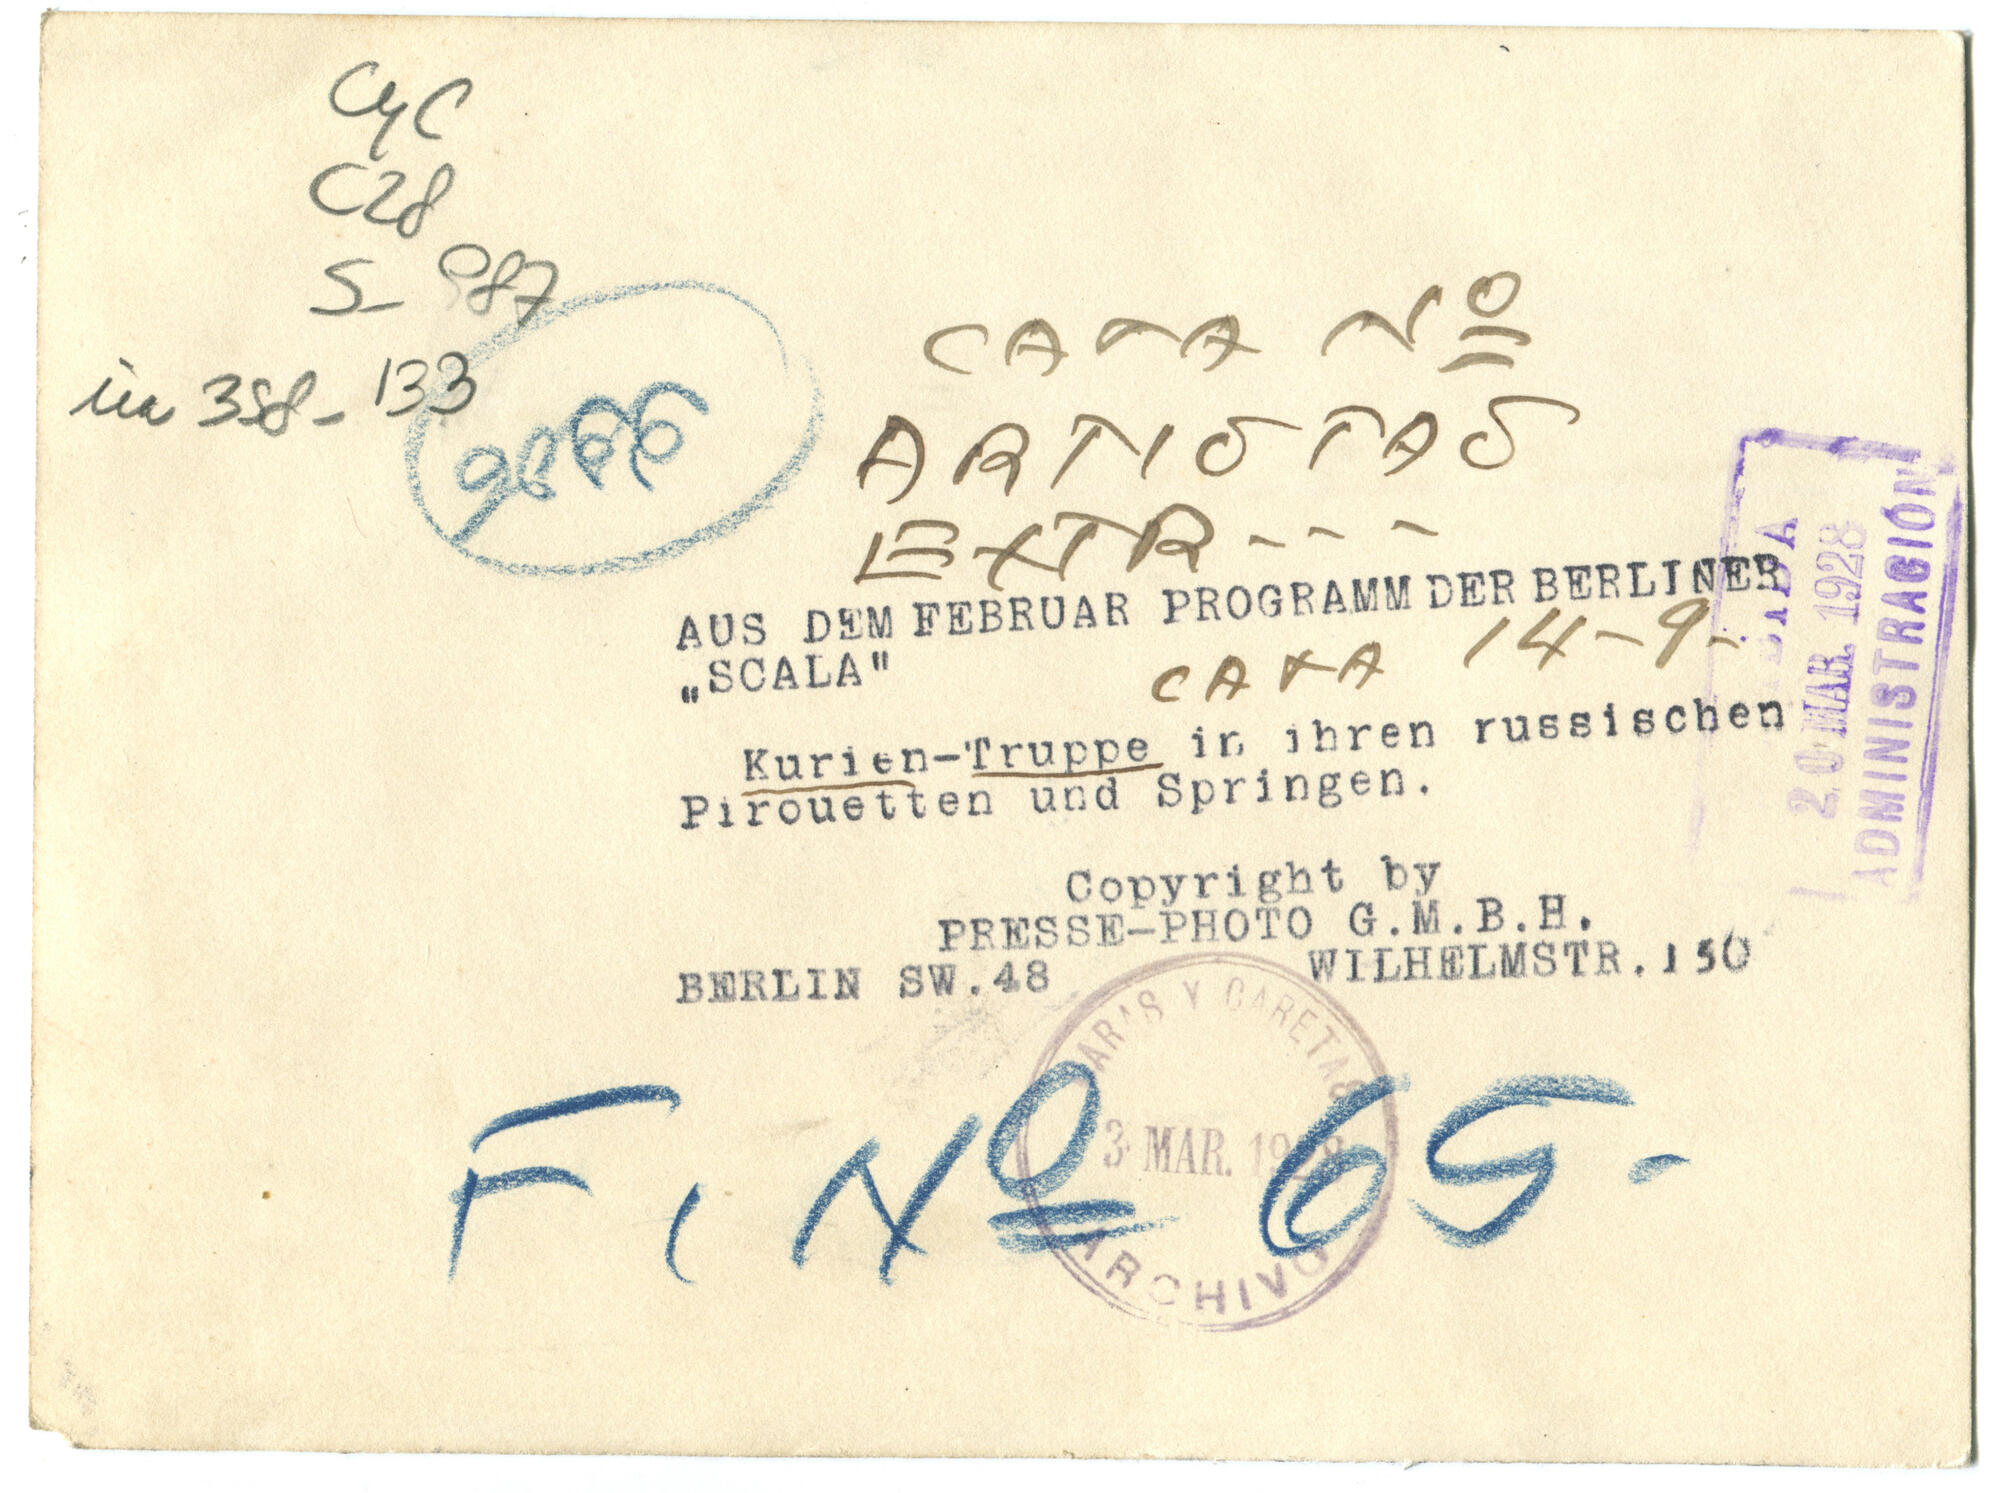 CyC
C28
S- 987
in 358- 133
CAXA Nº
ARTISTAS
EXTR---
AUS DEM FEBRUAR PROGRAMM DER BERLINER
„SCALA"
CAXA 14-9-
Kurien-Truppe in ihren russischen
Pirouetten und Springen.
Copyright by
PRESSE-PHOTO G.M.B.H.
BERLIN SW.48 WILHELMSTR.150
20 MAR. 1928
ADMINISTRACIÓN
CARAS Y CARETAS
3 MAR. 1928
ARCHIVO
F. Nº 65-